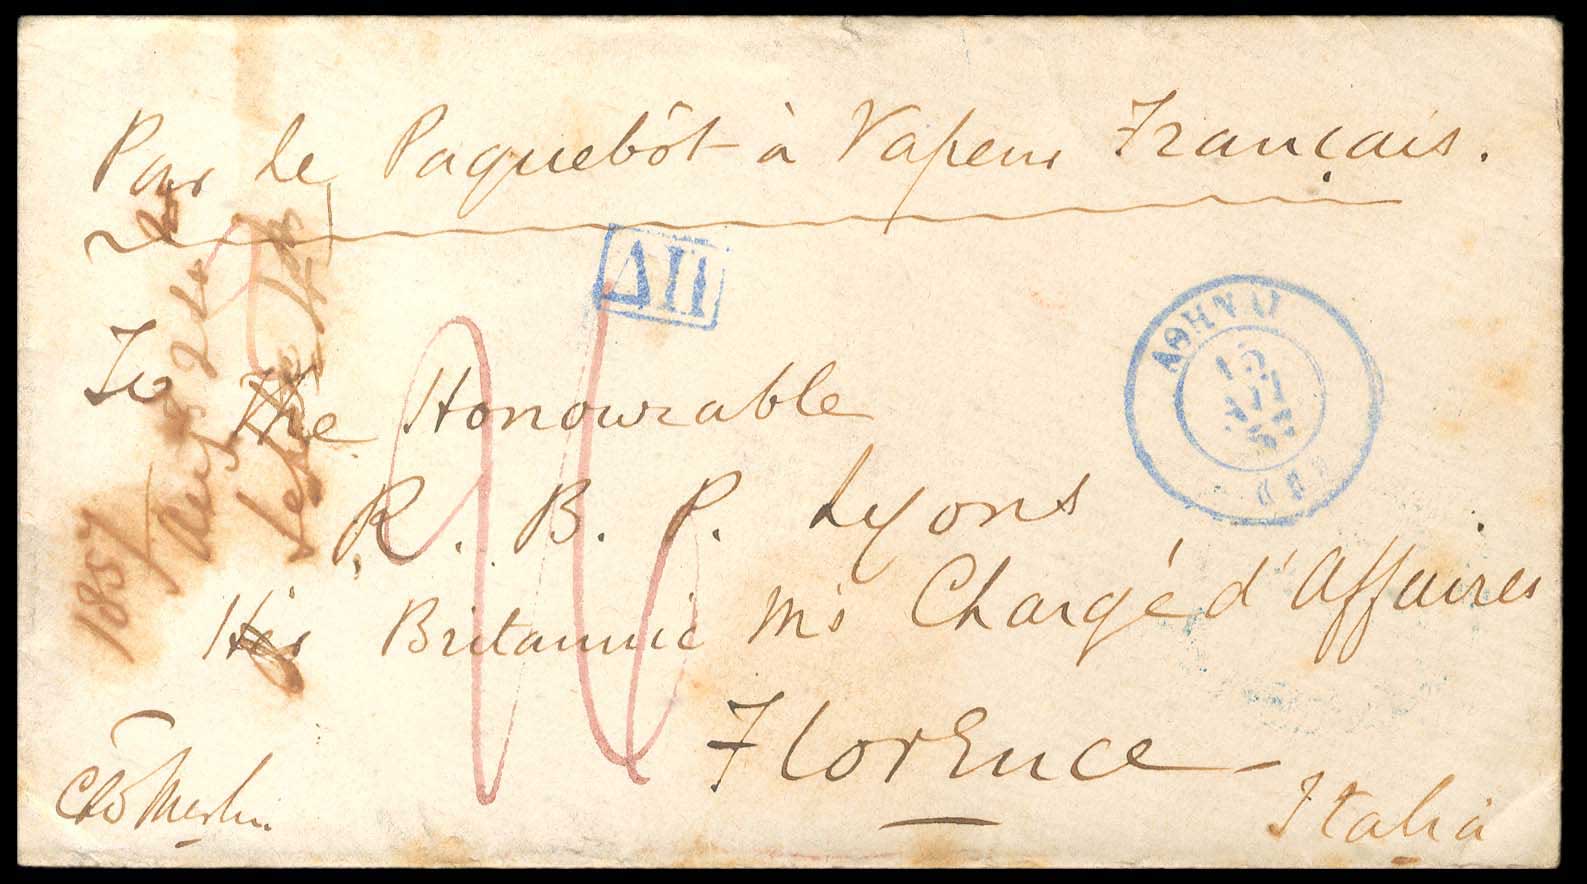 Par le Paquebôt à Vapeur Français.
ΔΠ
ΑΘΗΝΑΙ
15
To
The Honourable
R. B. P. Lyons
H Britannic M's Chargé d'Affaires
Florence
Italia
1857
Aug 24
Merlin